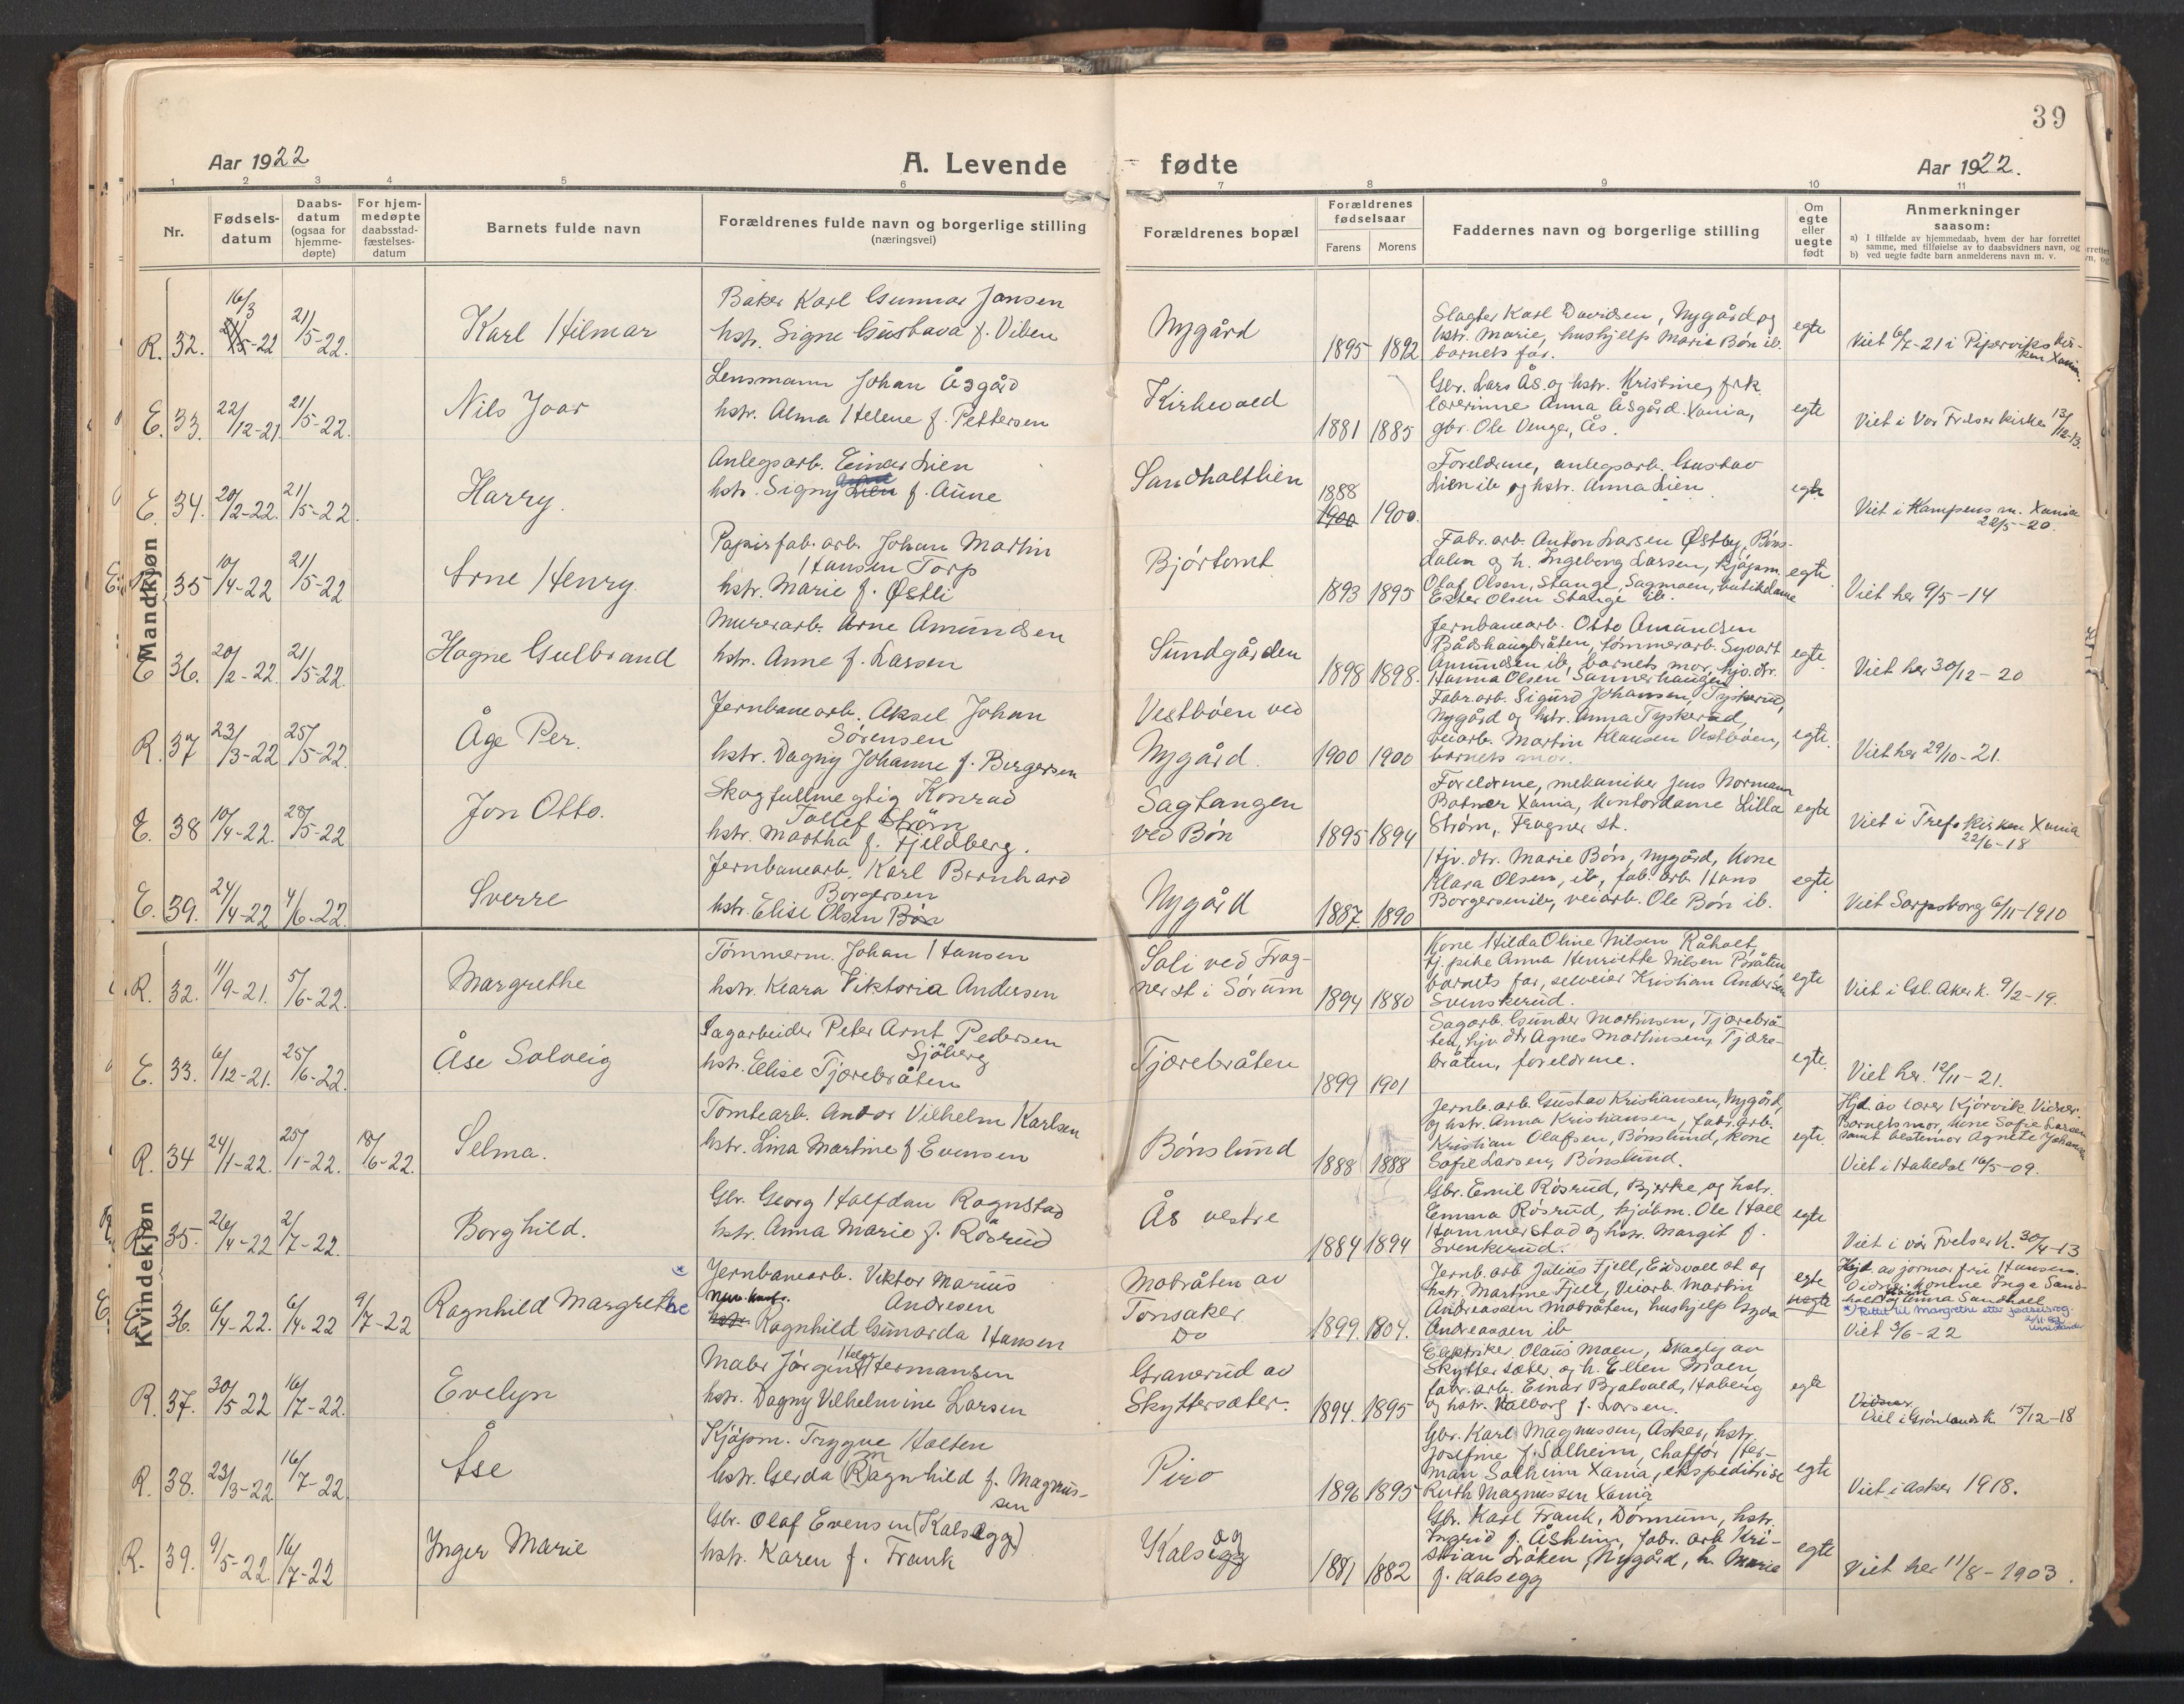 39
Aar 1922
A. Levende fødte
Aar 1922.
1 2 3 4 5 6 7 8 9 10 11
Nr.
Fødsels-
datum
Daabs-
datum
(ogsaa for
hjemme-
døpte)
For hjem-
medøpte
daabsstad-
fæstelses-
datum
Barnets fulde navn
Forældrenes fulde navn og borgerlige stilling
(næringsvei)
Forældrenes bopæl
Forældrenes
fødselsaar
Farens Morens
Faddernes navn og borgerlige stilling
Om
egte
eller
uegte
født
Anmerkninger
saasom:
a) I tilfælde av hjemmedaab, hvem der har forrettet
samme, med tilføielse av to daabsvidners navn, og
b) ved uegte fødte barn anmelderens navn m. v.
Mandkjøn
R. 32. 16/3 -22 21/5-22. Karl Hilmar
Baker Karl Gunnar Jansen
hstr. Signe Gustava f. Viben
Nygård
1895 1892
Slagter Karl Davidsen, Nygård og
hstr. Marie, hushjelp Marie Bøn ib.
barnets far.
egte
Viet 6/7-21 i Piperviks kir-
ken Xania.
E. 33. 22/12-21. 21/5-22. Nils Joar
Lensmann Johan Åsgård
hstr. Alma Helene f. Pettersen
Kirkevold
1881 1885
Gbr. Lars Ås og hstr. Kristine, frk.
lærerinne Anna Åsgård Xania,
gbr. Ole Venger, Ås.
egte
Viet i Vor Frelser kirke 13/12-13.
E. 34. 20/2-22. 21/5-22. Harry.
Anlegsarb. Einar Lien
hstr. Signy Lien f. Aune
Sandholtlien
1888
1900 1900.
Foreldrene, anlegsarb. Gustav
Lien ib og hstr. Anna Lien
egte
Viet i Kampens m. Xania
22/5-20.
E. 35 10/4-22 21/5-22 Arne Henry.
Papirfab. arb. Johan Martin
Hansen Torp
hstr. Marie f. Østli
Bjørtomt
1893 1895
Fabr. arb. Anton Larsen Østby, Bøns-
dalen og h. Ingeborg Larsen, kjøpm.
Olaf Olsen, Stange, Sagmoen, butikdame
Ester Olsen Stange ib.
egte
Viet her 9/5-14
E. 36. 20/2-22. 21/5-22. Hagne Gulbrand
Murerarb. Arne Amundsen
hstr. Anne f. Larsen
Sundgården
1898 1898.
Jernbanearb. Otto Amundsen
Bådshaugbråten, tømmerarb. Syvart
Amundsen ib, barnets mor, hjv. dtr.
Hanna Olsen Sannerhaugen
egte
Viet her 30/12-20
R. 37 23/3-22 25/5-22. Åge Per.
Jernbanearb. Aksel Johan
Sørensen
hstr. Dagny Johanne f. Birgersen
Vestbøen ved
Nygård.
1900 1900
Fabr. arb. Sigurd Johansen, Tyskerud,
Nygård og hstr. Anna Tyskerud,
veiarb. Martin Klausen Vestbøen,
barnets mor.
egte.
Viet her 29/10-21.
E. 38 10/4-22. 28/5-22 Jon Otto.
Skogfullmegtig Konrad
Tollef Strøm
hstr. Martha f. Fjeldberg.
Sagtangen
ved Bøn
1895 1894
Foreldrene, mekaniker Jens Normann
Botner Xania, kontordame Lilla
Strøm, Frogner st.
egte
Viet i Tref. kirken Xania
22/6-18
E. 39. 24/4-22 4/6-22. Sverre
Jernbanearb. Karl Bernhard
Borgersen
hstr. Elise Olsen Bøn
Nygård
1887. 1890
Hjv. dtr. Marie Bøn, Nygård, Kone
Klara Olsen, ib, fab. arb. Hans
Borgersen ib, veiarb. Ole Bøn ib.
egte.
Viet Sarpsborg 6/11-1910
Kvindekjøn
R. 32. 11/9-21. 5/6-22. Margrethe
Tømmerm. Johan Hansen
hstr. Klara Viktoria Andersen
Soli ved Frog-
ner st i Sørum
1894 1880
Kone Hilda Oline Nilsen Råholt,
tj. pike Anna Henriette Nilsen
barnets far, selveier Kristian Andersen
Svenskerud.
egte
Viet i Gl. Aker k. 9/2-19.
E. 33. 6/12-21. 25/6-22. Åse Solveig
Sagarbeider Peter Arnt Pedersen
Sjøberg
hstr. Elise Tjærebråten
Tjærebråten
1899 1901
Sagarb. Gunder Martinsen, Tjærebrå-
ten, hjv. dtr Agnes Martinsen, Tjære-
bråten, foreldrene.
egte.
Viet her. 12/11-21.
R. 34 24/1-22. 25/1-22. 18/6-22. Selma.
Tomtearb. Andor Vilhelm Karlsen
hstr. Lina Martine f Evensen
Bønslund
1888 1888
Jernb. arb. Gustav Kristiansen, Nygård,
og hstr. Anna Kristiansen, fabr. arb.
Kristian Olafsen, Bønslund, kone
Sofie Larsen, Bønslund.
egte.
Hjd. av lærer Kjørvik. Vidner:
Barnets mor, kone Sofie Larsen
samt bestemor Agnete Johansen
Viet i Hakedal 16/5-09.
R. 35. 26/4-22 2/7-22. Borghild.
Gbr. Georg Halfdan Rognstad
hstr. Anna Marie f. Rösrud
Ås vestre
1884 1894
Gbr. Emil Røsrud, Bjerke og hstr.
Emma Røsrud, kjøbm. Ole Hoel
Hammerstad og hstr. Margit f.
Svenkerud.
egte
Viet i vår Frelser K. 30/4-13
E. 36. 6/4-22. 6/4-22 9/7-22 Ragnhild Margrethe *
Jernbanearb. Viktor Marius
Andresen
hstr. Ragnhild Gunarda Hansen
Mobråten av
Tonsaker
Do
1899. 1804.
Jernb. arb Julius Fjell, Eidsvoll st og
hstr. Martine Fjell, Veiarb. Martin
Andreassen Mobråten, hushjelp Gyda
Andreassen ib
egte
uegte
Hjd. av jormorfrue Hansen.
Vidner: Konene Inga Sand-
holt og Anna Sandholt
*) Rettet til Margrethe etter
Viet 3/6-22
R. 37. 30/5 22 16/7-22. Evelyn
Maler Jørgen Helge Hermansen
hstr. Dagny Vilhelmine Larsen
Graverud av
Skyttersæter.
1894. 1895
Elektriker Olaus Moen, Skoglij av
Skyttersæter og h. Ellen Moen,
fabr. arb. Einar Bjatvald, Haberg
og hstr. Valborg f. Larsen.
egte
Vidner
Viet i Grønlands k. 15/12-18
R. 38. 23/3-22 16/7-22 Åse
Kjøpm. Trygve Holten
hstr. Gerda Ragnhild f. Magnus-
sen
Piro
1896 1895
Gbr. Karl Magnussen, Asker, hstr.
Josefine f. Solheim, chaffør Her-
man Solheim Xania, ekspeditrise
Ruth Magnussen Xania
egte
Viet i Asker 1918.
R. 39. 9/5-22. 16/7-22 Inger Marie
Gbr. Olaf Evensen (Kalsegg)
hstr. Karen f. Frank
Kalsegg
1881 1882
Gbr. Karl Frank, Dønnum, hstr.
Ingrid f. Åsheim, fabr. arb Kri-
stian Låken, Nygård, h. Marie
f. Kalsegg
egte
Viet her 11/8-1903.